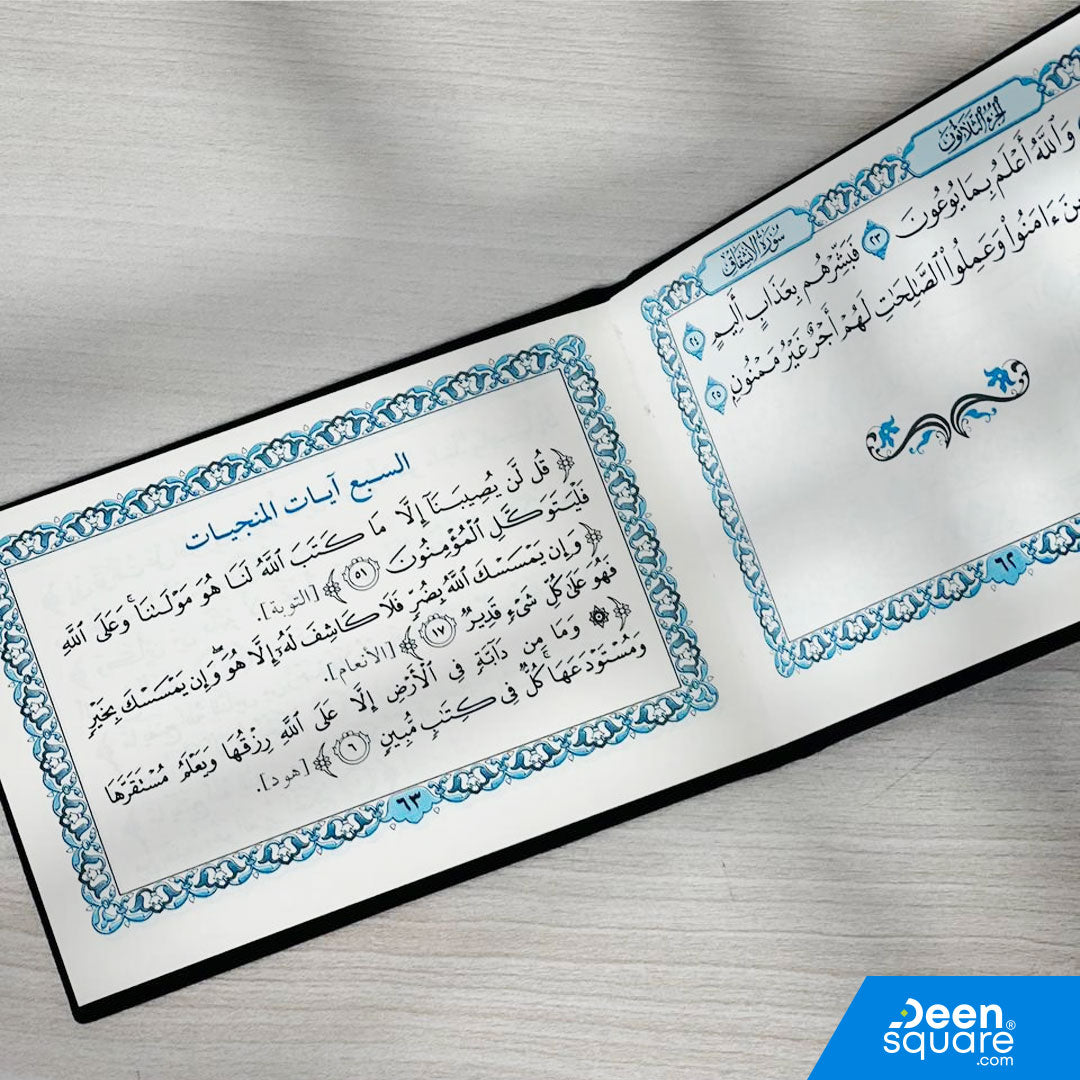 الجزء الثلاثون
سورة الانشقاق
وَٱللَّهُ أَعْلَمُ بِمَا يُوعُونَ ٢٣ فَبَشِّرْهُم بِعَذَابٍ أَلِيمٍ ٢٤
ءَامَنُوا۟ وَعَمِلُوا۟ ٱلصَّٰلِحَٰتِ لَهُمْ أَجْرٌ غَيْرُ مَمْنُونٍۭ ٢٥
٦٢
السبع آيات المنجيات
﴿ قُل لَّن يُصِيبَنَآ إِلَّا مَا كَتَبَ ٱللَّهُ لَنَا هُوَ مَوْلَىٰنَا ۚ وَعَلَى ٱللَّهِ
فَلْيَتَوَكَّلِ ٱلْمُؤْمِنُونَ ٥١ ﴾ [التوبة].
﴿ وَإِن يَمْسَسْكَ ٱللَّهُ بِضُرٍّ فَلَا كَاشِفَ لَهُۥٓ إِلَّا هُوَ ۖ وَإِن يَمْسَسْكَ بِخَيْرٍ
فَهُوَ عَلَىٰ كُلِّ شَىْءٍ قَدِيرٌ ١٧ ﴾ [الأنعام].
﴿ ۞ وَمَا مِن دَآبَّةٍ فِى ٱلْأَرْضِ إِلَّا عَلَى ٱللَّهِ رِزْقُهَا وَيَعْلَمُ مُسْتَقَرَّهَا
وَمُسْتَوْدَعَهَا ۚ كُلٌّ فِى كِتَٰبٍ مُّبِينٍ ٦ ﴾ [هود].
٦٣
Deen
square®
.com